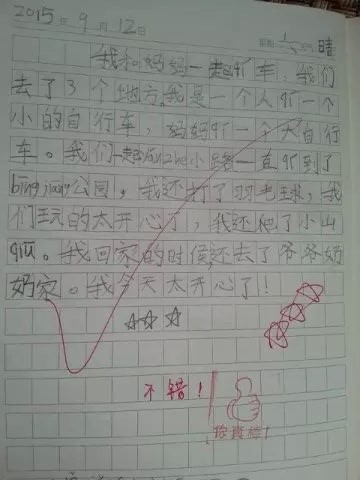 2015年9月12日 星期六 晴
我和妈妈一起骑车,我们
去了3个地方,我是一个人骑一个
小的自行车,妈妈骑一个大自行
车。我们一起沿zhe小路一直骑到了
公园。我还打了羽毛球,我
们玩的太开心了,我还爬了小山
qiū。我回家的时候还去了爷爷奶
奶家。我今天太开心了!
不错!
你真棒!